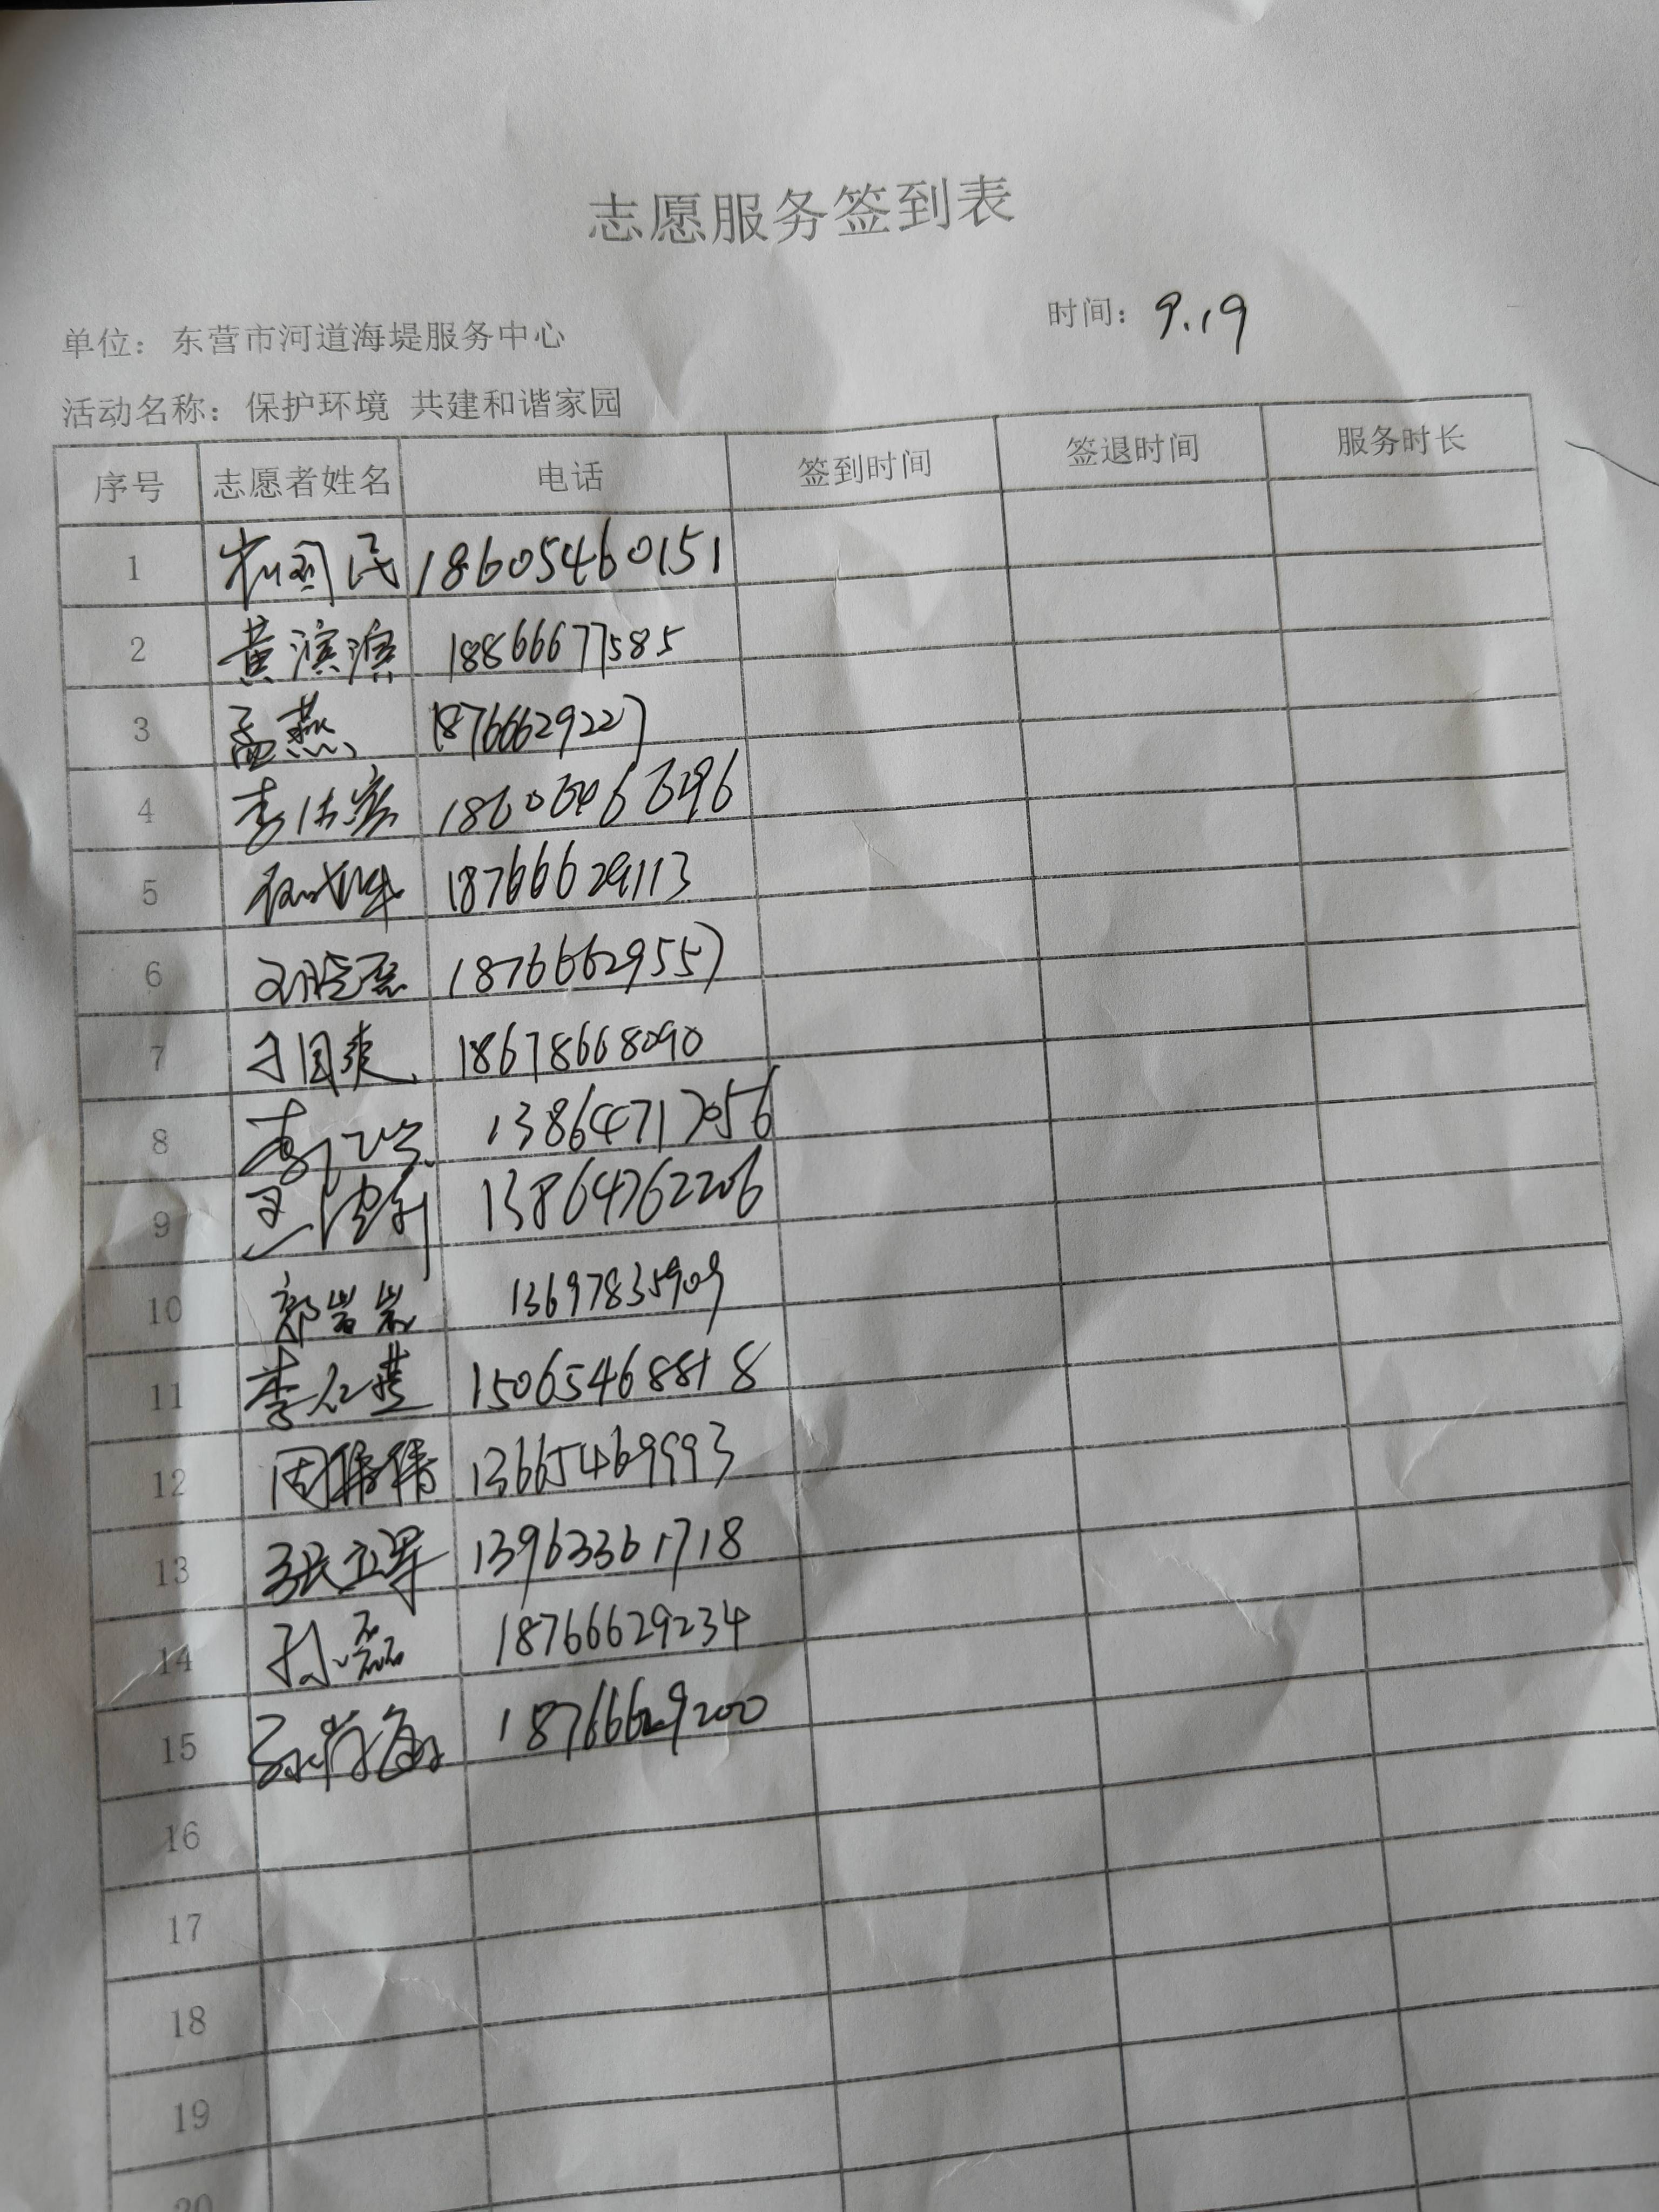 志愿服务签到表
单位：东营市河道海堤服务中心 时间：9.19
活动名称：保护环境 共建和谐家园
序号 志愿者姓名 电话 签到时间 签退时间 服务时长
1 18605460151
2 黄滨滨 18866677585
3 孟燕 18766629227
4 李
5 18766629113
6 18766629557
7 18678668090
8 李 13864717056
9 13864762206
10 郭岩岩 13697835909
11 李 15065468818
12 周倩倩 13665469993
13 张立军 13963361718
14 孙磊 18766629234
15 18766629200
16
17
18
19
20